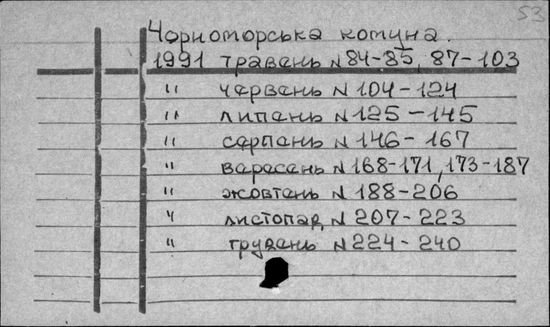 53
Чорноморська комуна.
1991 травень N 84-85, 87-103
" червень N 104-124
" липень N 125-145
" серпень N 146-167
" вересень N 168-171, 173-187
" жовтень N 188-206
" листопад N 207-223
" грудень N 224-240